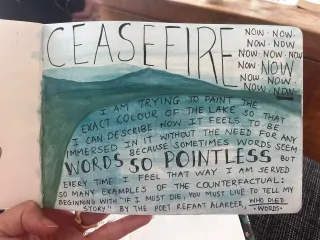 CEASEFIRE
NOW · NOW ·
NOW · NOW
NOW · NOW NOW
NOW · NOW
NOW · NOW ·
NOW · NOW
I AM TRYING TO PAINT THE
EXACT COLOUR OF THE LAKE SO THAT
I CAN DESCRIBE HOW IT FEELS TO BE
IMMERSED IN IT WITHOUT THE NEED FOR ANY
BECAUSE SOMETIMES WORDS SEEM
WORDS SO POINTLESS BUT
EVERY TIME I FEEL THAT WAY I AM SERVED
SO MANY EXAMPLES OF THE COUNTERFACTUAL:
BEGINNING WITH "IF I MUST DIE, YOU MUST LIVE TO TELL MY
STORY" BY THE POET REFAAT ALAREER, WHO DIED.
·WORDS·